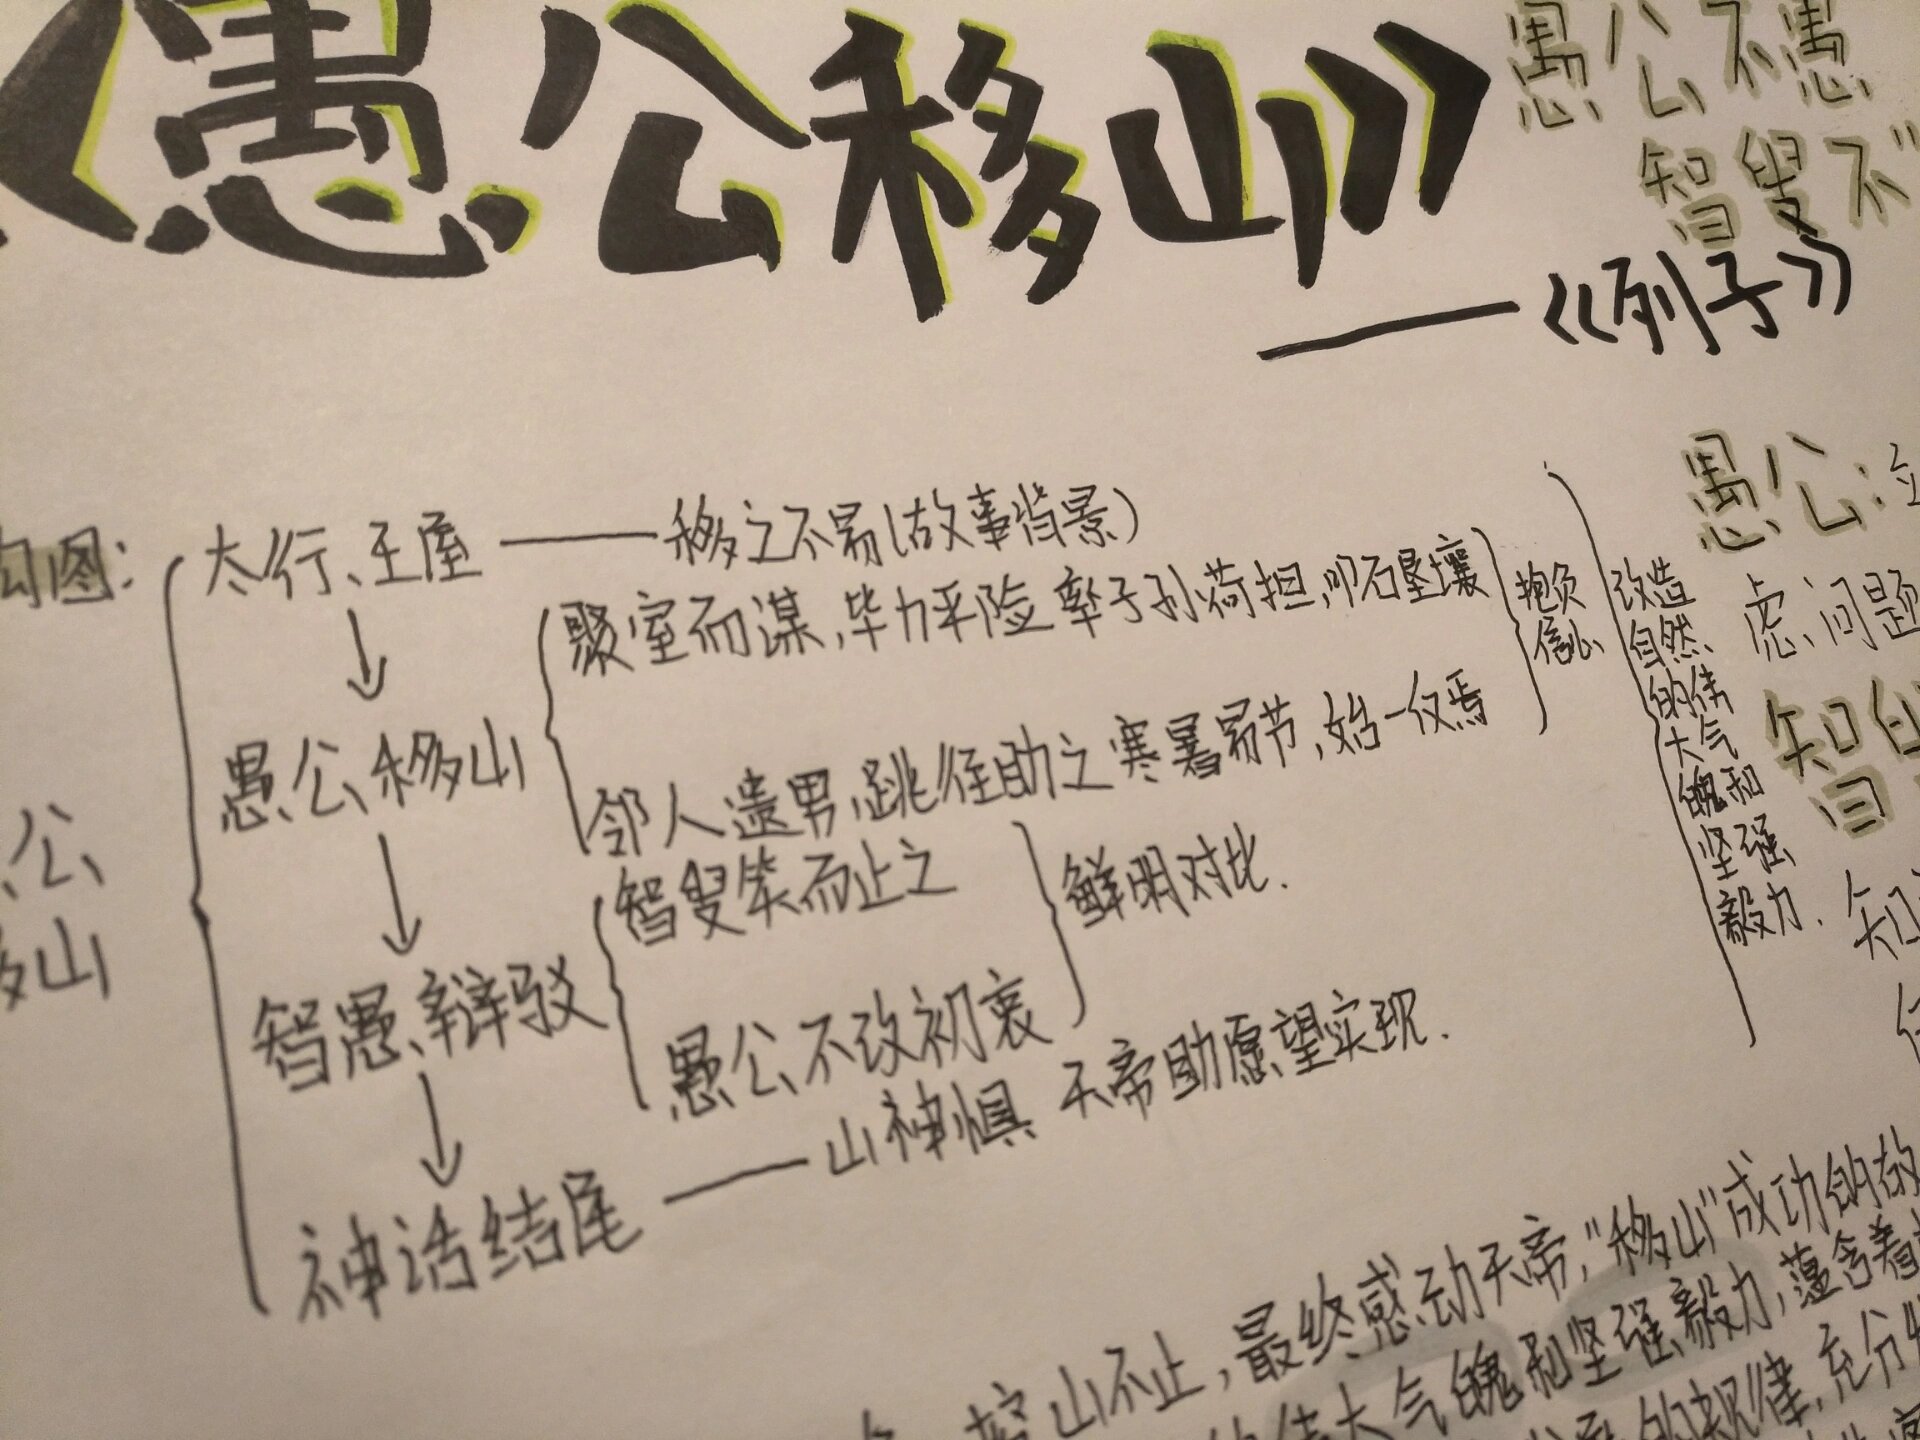 《愚公移山》
愚公不愚
智叟不
——《列子》
构图:
太行、王屋——移之不易(故事背景)
聚室而谋,毕力平险 率子孙荷担,叩石垦壤
愚公移山
邻人遗男,跳往助之 寒暑易节,始一反焉
抱负
信心
改造
自然、
的伟
大气
魄和
坚强
毅力.
公
移山
智叟笑而止之
鲜明对比.
智愚辩驳
愚公不改初衷
神话结尾——山神惧 天帝助愿望实现.
愚公:
虑问题
智叟
知
山不止,最终感动天帝,"移山"成功的故
伟大气魄和坚强毅力,蕴含着
的规律,充分